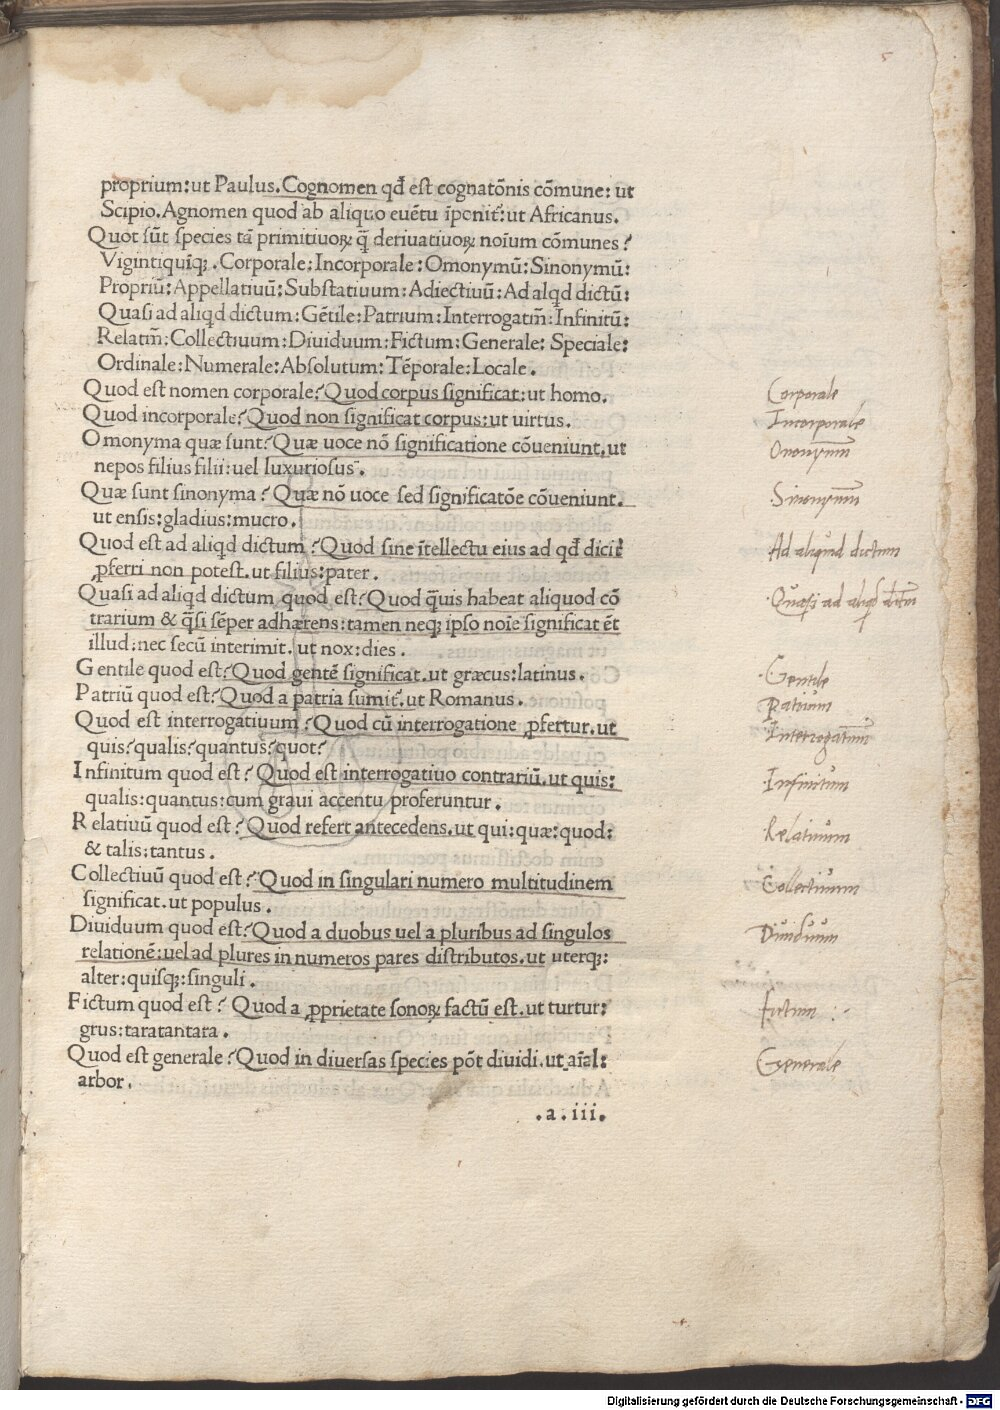 5
proprium:ut Paulus.Cognomen qđ est cognatõnis cõmune: ut
Scipio.Agnomen quod ab aliquo euẽtu ĩponit᷑:ut Africanus.
Quot sũt species tã primitiuoꝝ q̃ deriuatiuoꝝ noĩum cõmunes?
Vigintiquĩqꝫ.Corporale:Incorporale:Omonymũ:Sinonymũ:
Propriũ:Appellatiuũ:Substatiuum:Adiectiuũ:Ad alqd dictũ:
Quasi ad aliqd dictum:Gẽtile:Patrium:Interrogatm̃:Infinitũ:
Relatm̃:Collectiuum:Diuiduum:Fictum:Generale: Speciale:
Ordinale:Numerale:Absolutum:Tẽporale:Locale.
Quod est nomen corporale?Quod corpus significat:ut homo.
Corporale
Quod incorporale?Quod non significat corpus:ut uirtus.
Incorporale
Omonyma quæ sunt?Quæ uoce nõ significatione cõueniunt.ut
Omonymum
nepos filius filii:uel luxuriosus.
Quæ sunt sinonyma?Quæ nõ uoce sed significatõe cõueniunt.
Sinonymum
ut ensis:gladius:mucro.
Quod est ad aliqd dictum?Quod sine ĩtellectu eius ad qđ dicit᷑
Ad aliquid dictum
ꝓferri non potest.ut filius:pater.
Quasi ad aliqd dictum quod est?Quod q̃uis habeat aliquod cõ
Quasi ad aliqd dictum
trarium & q̃si sẽper adhærens:tamen neqꝫ ipso noĩe significat ẽt
illud:nec secũ interimit.ut nox:dies.
Gentile quod est?Quod gentẽ significat.ut græcus:latinus.
Gentile
Patriũ quod est?Quod a patria sumit᷑.ut Romanus.
Patrium
Quod est interrogatiuum?Quod cũ interrogatione ꝓfertur.ut
Interrogatiuum
quis?qualis?quantus?quot?
Infinitum quod est?Quod est interrogatiuo contrariũ.ut quis:
Infinitum
qualis:quantus:cum graui accentu proferuntur.
Relatiuũ quod est?Quod refert antecedens.ut qui:quæ:quod:
Relatiuum
& talis:tantus.
Collectiuũ quod est?Quod in singulari numero multitudinem
Collectiuum
significat.ut populus.
Diuiduum quod est?Quod a duobus uel a pluribus ad singulos
Diuiduum
relationẽ:uel ad plures in numeros pares distributos.ut uterqꝫ:
alter:quisqꝫ:singuli.
Fictum quod est?Quod a ꝓprietate sonoꝝ factũ est.ut turtur:
fictum
grus:taratantara.
Quod est generale?Quod in diuersas species põt diuidi.ut aĩal:
Generale
arbor.
.a.iii.
Digitalisierung gefördert durch die Deutsche Forschungsgemeinschaft - DFG